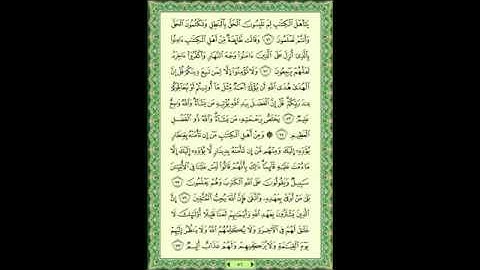 يَٰٓأَهۡلَ ٱلۡكِتَٰبِ لِمَ تَلۡبِسُونَ ٱلۡحَقَّ بِٱلۡبَٰطِلِ وَتَكۡتُمُونَ ٱلۡحَقَّ
وَأَنتُمۡ تَعۡلَمُونَ ٧١ وَقَالَت طَّآئِفَةٞ مِّنۡ أَهۡلِ ٱلۡكِتَٰبِ ءَامِنُواْ
بِٱلَّذِيٓ أُنزِلَ عَلَى ٱلَّذِينَ ءَامَنُواْ وَجۡهَ ٱلنَّهَارِ وَٱكۡفُرُوٓاْ ءَاخِرَهُۥ
لَعَلَّهُمۡ يَرۡجِعُونَ ٧٢ وَلَا تُؤۡمِنُوٓاْ إِلَّا لِمَن تَبِعَ دِينَكُمۡ قُلۡ إِنَّ
ٱلۡهُدَىٰ هُدَى ٱللَّهِ أَن يُؤۡتَىٰٓ أَحَدٞ مِّثۡلَ مَآ أُوتِيتُمۡ أَوۡ يُحَآجُّوكُمۡ
عِندَ رَبِّكُمۡۗ قُلۡ إِنَّ ٱلۡفَضۡلَ بِيَدِ ٱللَّهِ يُؤۡتِيهِ مَن يَشَآءُۗ وَٱللَّهُ وَٰسِعٌ
عَلِيمٞ ٧٣ يَخۡتَصُّ بِرَحۡمَتِهِۦ مَن يَشَآءُۗ وَٱللَّهُ ذُو ٱلۡفَضۡلِ
ٱلۡعَظِيمِ ٧٤ ۞ وَمِنۡ أَهۡلِ ٱلۡكِتَٰبِ مَنۡ إِن تَأۡمَنۡهُ بِقِنطَارٖ
يُؤَدِّهِۦٓ إِلَيۡكَ وَمِنۡهُم مَّنۡ إِن تَأۡمَنۡهُ بِدِينَارٖ لَّا يُؤَدِّهِۦٓ إِلَيۡكَ إِلَّا
مَا دُمۡتَ عَلَيۡهِ قَآئِمٗاۗ ذَٰلِكَ بِأَنَّهُمۡ قَالُواْ لَيۡسَ عَلَيۡنَا فِي ٱلۡأُمِّيِّـۧنَ
سَبِيلٞ وَيَقُولُونَ عَلَى ٱللَّهِ ٱلۡكَذِبَ وَهُمۡ يَعۡلَمُونَ ٧٥
بَلَىٰۚ مَنۡ أَوۡفَىٰ بِعَهۡدِهِۦ وَٱتَّقَىٰ فَإِنَّ ٱللَّهَ يُحِبُّ ٱلۡمُتَّقِينَ ٧٦ إِنَّ
ٱلَّذِينَ يَشۡتَرُونَ بِعَهۡدِ ٱللَّهِ وَأَيۡمَٰنِهِمۡ ثَمَنٗا قَلِيلًا أُوْلَٰٓئِكَ لَا
خَلَٰقَ لَهُمۡ فِي ٱلۡأٓخِرَةِ وَلَا يُكَلِّمُهُمُ ٱللَّهُ وَلَا يَنظُرُ إِلَيۡهِمۡ
يَوۡمَ ٱلۡقِيَٰمَةِ وَلَا يُزَكِّيهِمۡ وَلَهُمۡ عَذَابٌ أَلِيمٞ ٧٧
٥٩